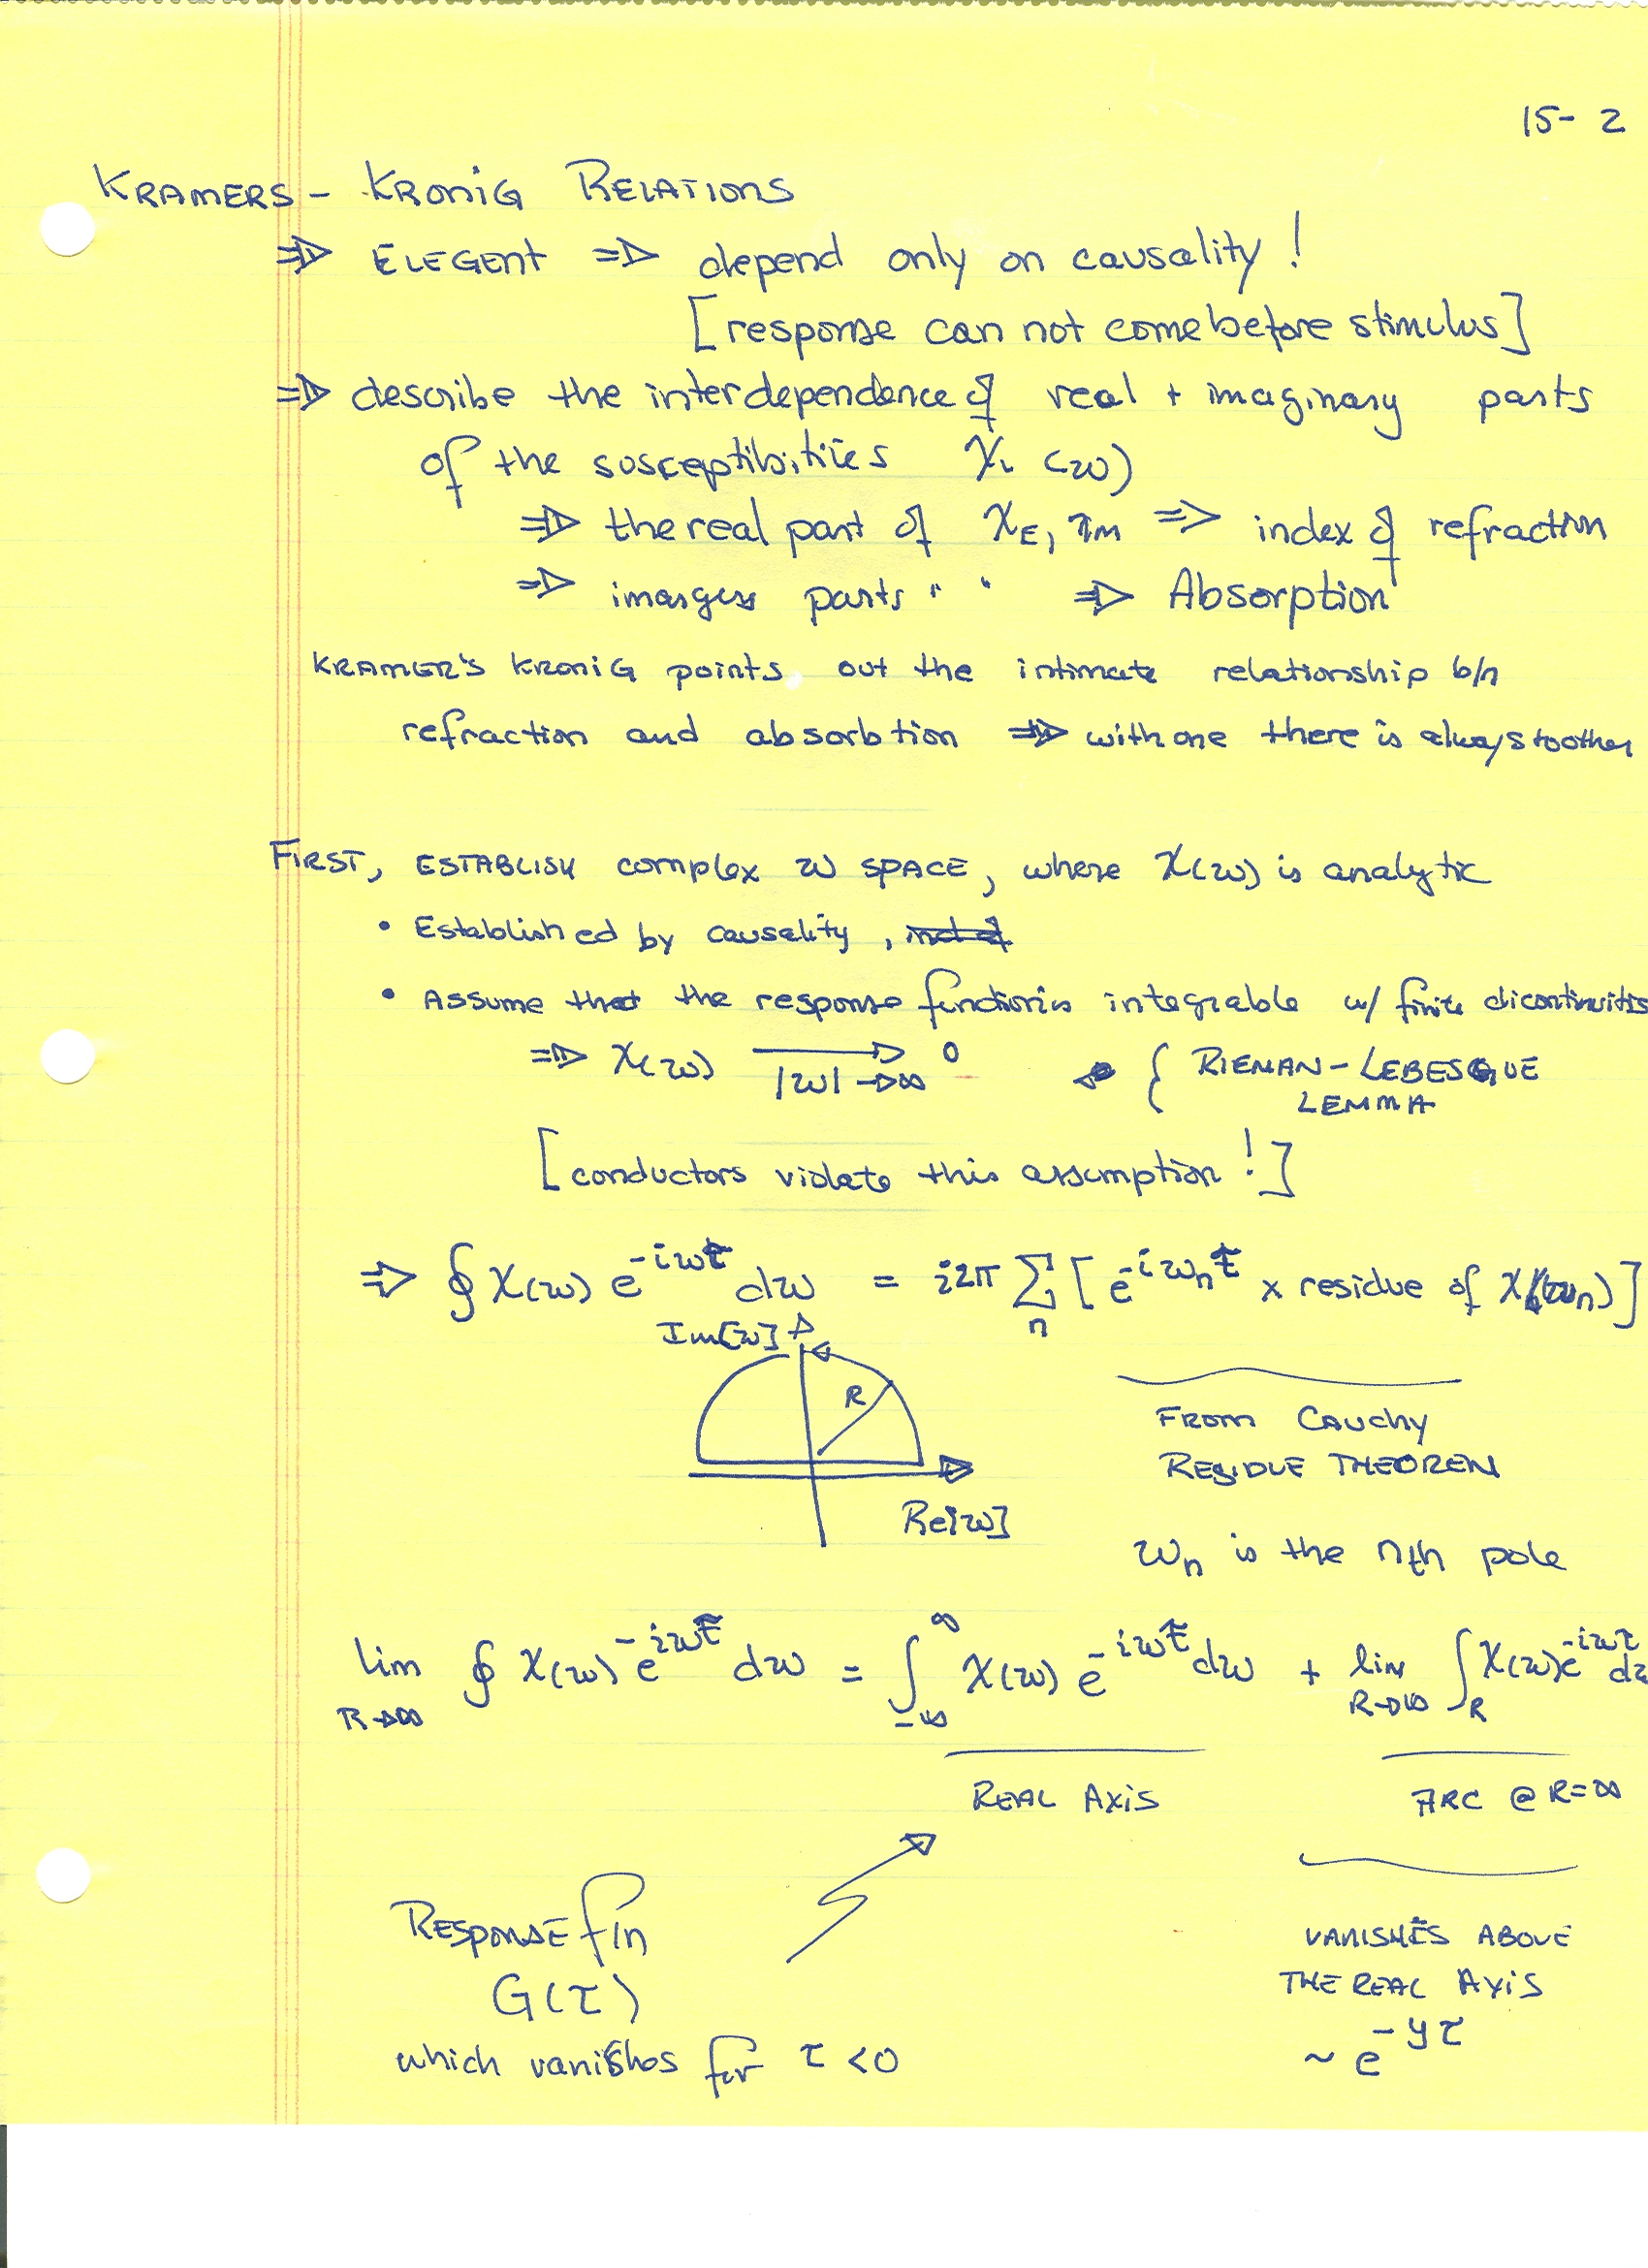 15-2
KRAMERS - KRONIG RELATIONS
⇒ ELEGENT ⇒ depend only on causality!
[response can not come before stimulus]
⇒ describe the interdependence of real + imaginary parts
of the susceptibilities χi (ω)
⇒ the real part of χE, χm ⇒ index of refraction
⇒ parts " " ⇒ Absorption
KRAMER'S KRONIG points out the intimate relationship b/n
refraction and absorbtion ⇒ with one there is always
FIRST, ESTABLISH complex ω SPACE, where χ(ω) is analytic
• Established by causality,
• Assume that the response function is integrable w/ finite dicontinuities
⇒ χ(ω) → 0 |ω|→∞ { RIEMAN-LEBESGUE
LEMMA
[conductors violate this assumption!]
⇒ ∮ χ(ω) e^{-iωτ} dω = i2π Σ_n [e^{-iω_nτ} x residue of χ(ω_n)]
Im[ω]
R
FROM CAUCHY
RESIDUE THEOREM
Re[ω]
ω_n is the nth pole
lim_{R→∞} ∮ χ(ω) e^{-iωτ} dω = ∫_{-∞}^{∞} χ(ω) e^{-iωτ} dω + lim_{R→∞} ∫_R χ(ω) e^{-iωτ} dω
REAL AXIS ARC @ R=∞
RESPONSE fin
G(τ)
which vanishes for τ <0
VANISHES ABOVE
THE REAL AXIS
~ e^{-yτ}